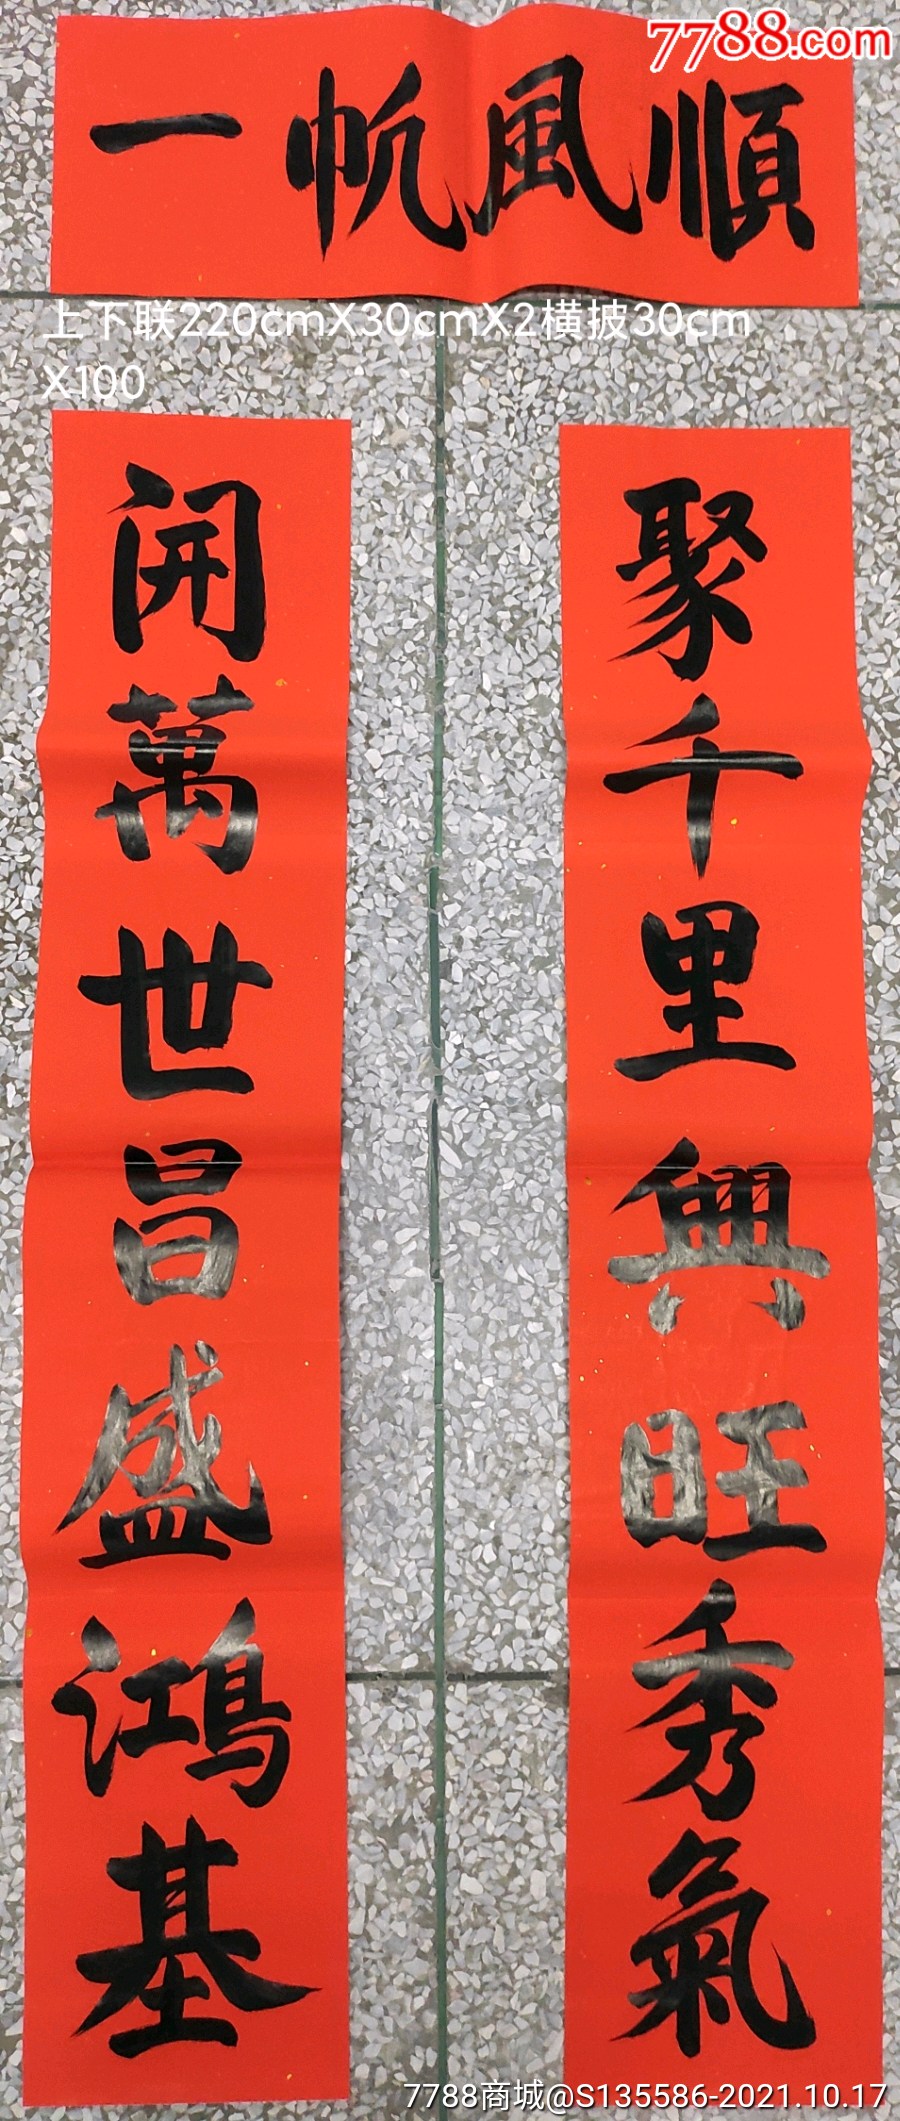 7788.com
一帆風順
上下联220cmX30cmX2横披30cm
X100
開萬世昌盛鴻基
聚千里興旺秀氣
7788商城@S135586-2021.10.17